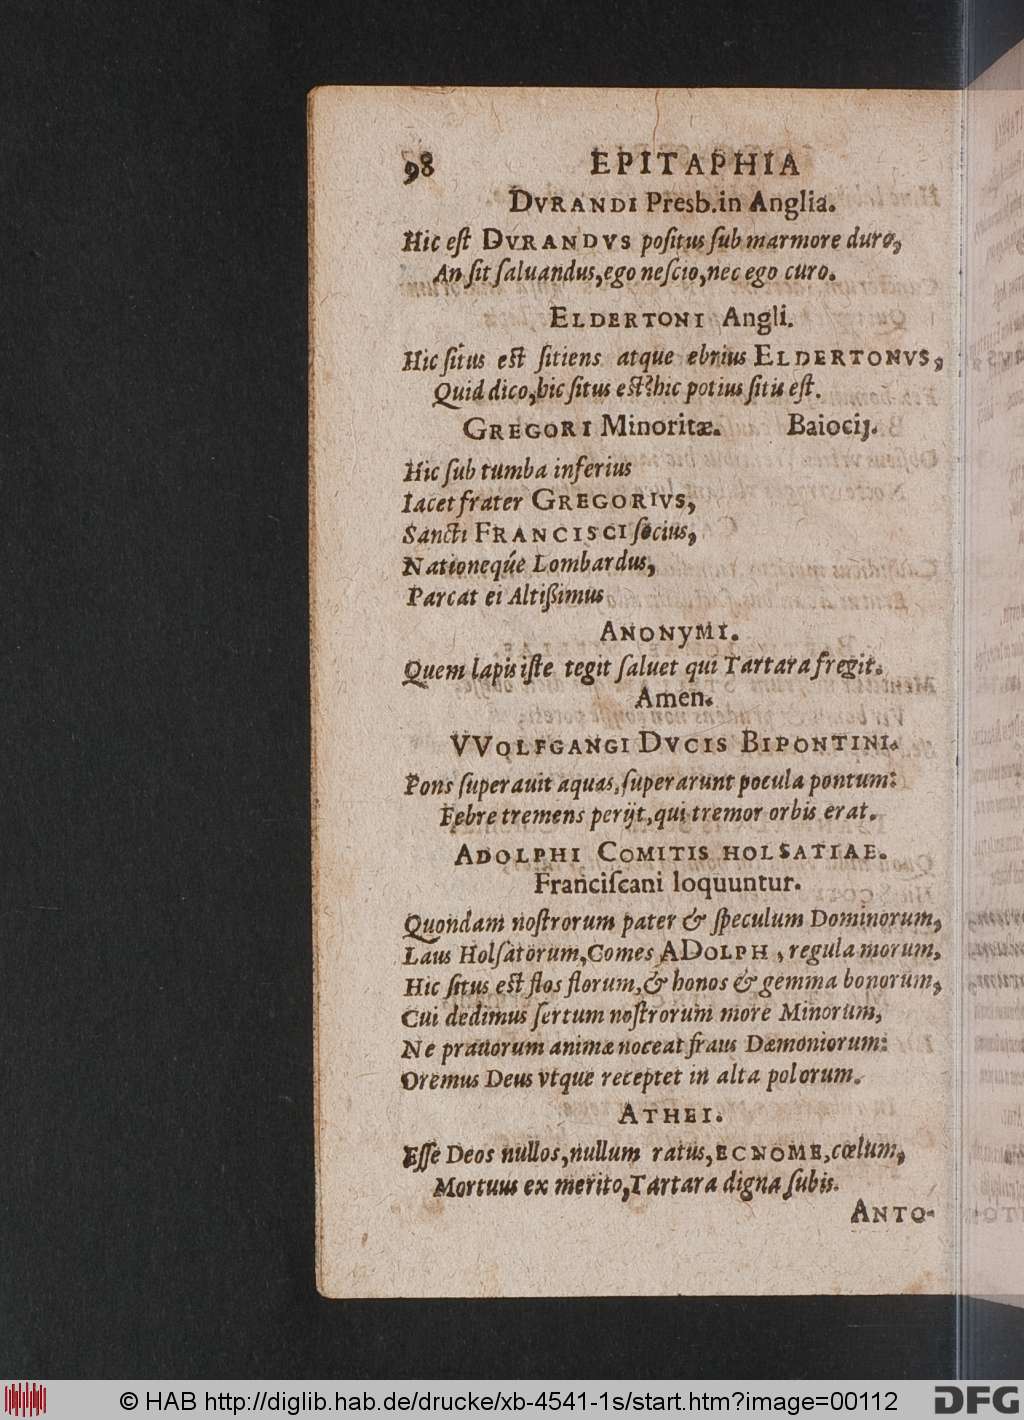 98 EPITAPHIA
DVRANDI Presb. in Anglia.
Hic eſt DVRANDVS poſitus ſub marmore duro,
An ſit ſaluandus, ego neſcio, nec ego curo.
ELDERTONI Angli.
Hic ſitus eſt ſitiens atque ebrius ELDERTONVS,
Quid dico, hic ſitus eſt? hic potius ſitis eſt.
GREGORI Minoritæ. Baiocij.
Hic ſub tumba inferius
Iacet frater GREGORIVS,
Sancti FRANCISCI ſocius,
Nationeq́ue Lombardus,
Parcat ei Altißimus
ANONyMI.
Quem lapis iſte tegit ſaluet qui Tartara fregit.
Amen.
VVOLFGANGI DVCIS BIPONTINI.
Pons ſuperauit aquas, ſuperarunt pocula pontum:
Febre tremens perijt, qui tremor orbis erat.
ADOLPHI COMITIS HOLSATIAE.
Franciſcani loquuntur.
Quondam noſtrorum pater & ſpeculum Dominorum,
Laus Holſatorum, Comes ADOLPH, regula morum,
Hic ſitus eſt flos florum, & honos & gemma bonorum,
Cui dedimus ſertum noſtrorum more Minorum,
Ne prauorum animæ noceat fraus Dæmoniorum:
Oremus Deus vtque receptet in alta polorum.
ATHEI.
Eſſe Deos nullos, nullum ratus, ECNOME, cœlum,
Mortuus ex merito, Tartara digna ſubis.
ANTO-
© HAB http://diglib.hab.de/drucke/xb-4541-1s/start.htm?image=00112
DFG